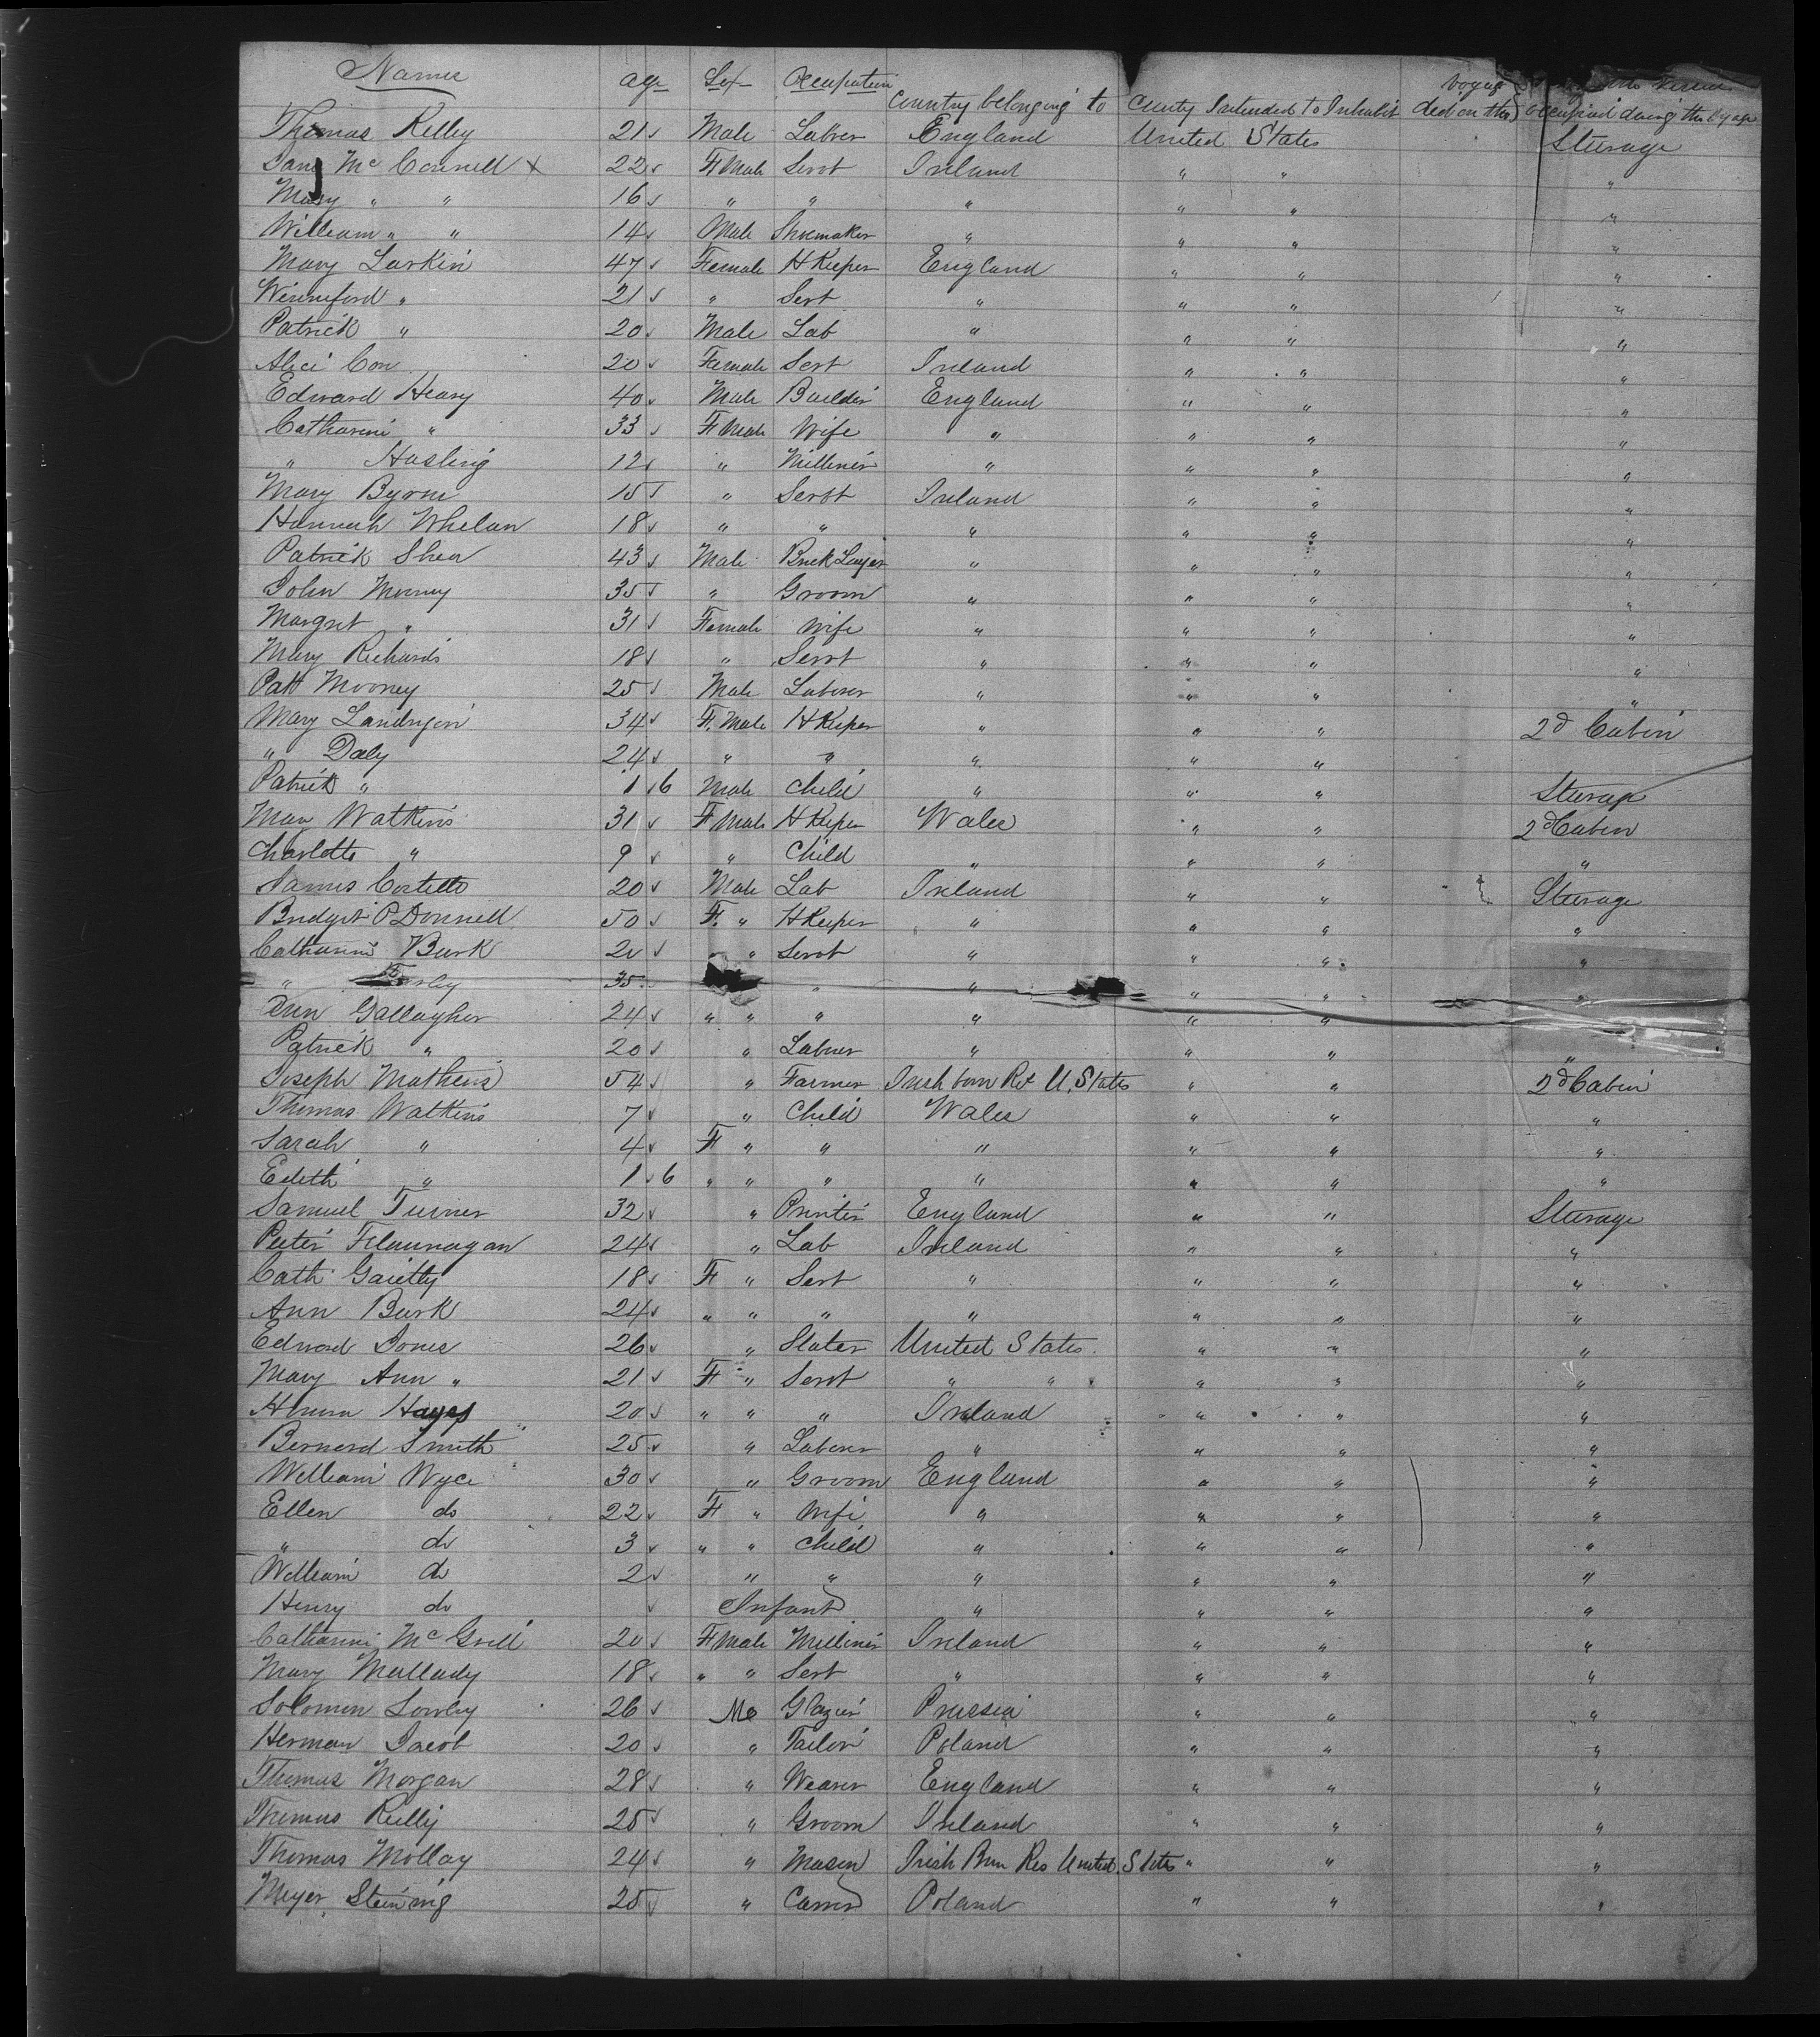 Names age Sex Occupation Country belonging to Cunty Intended to Inhabit Died on the voyage occupied during the Voyage
Thomas Kelley 21 Male Labrer England United States Sturage
Jane Mc Connell x 22 F Male Servt Ireland " " "
Mary " " 16 " " " " " "
William " " 14 Male Shoemaker " " " "
Mary Larkin 47 Female H Keeper England " " "
Winniford " 21 " Sert " " " "
Patrick " 20 Male Lab " " " "
Alice Con 20 Female Sert Ireland " " "
Edward Heavy 40 Male Builder England " " "
Catharine " 33 F Male Wife " " " "
" Hasling 12 " Milliner " " " "
Mary Byrne 15 " Servt Ireland " " "
Hannah Whelan 18 " " " " " "
Patrick Shea 43 Male Brick Layer " " " "
John Morney 35 " Groom " " " "
Margret " 31 Female Wife " " " "
Mary Richards 18 " Servt " " " "
Patt Mooney 25 Male Laborer " " " "
Mary Landrigen 34 F. Male H Keeper " " " 2d Cabin
" Daly 24 " " " " "
Patrick " 1 6 Male Child " " " Sturage
Mary Watkins 31 F Male H Keeper Wales " " 2d Cabin
Charlotte " 9 " Child " " " "
James Costello 20 Male Lab Ireland " " Sturage
Bridget O Donnell 50 F. " H Keeper " " " "
Catharine Burk 20 " Servt " " " "
" 35 " " " " "
Ann Gallagher 24 " " " " " "
Patrick " 20 " Labrer " " " "
Joseph Mathews 54 " Farmer Irish born Res U. States " " 2d Cabin
Thomas Watkins 7 " Child Wales " " "
Sarah " 4 F " " " " " "
Edith " 1 6 " " " " " " "
Samuel Turner 32 " Printer England " " Sturage
Peter Flaunagan 24 " Lab Ireland " " "
Cath Gaietty 18 F " Sert " " " "
Ann Burk 24 " " " " " " "
Edward Jones 26 " Slater United States " " "
Mary Ann " 21 F " Servt " " " " "
Hayes 20 " " " Ireland " " "
Bernard Smith 25 " Laborer " " " "
William Wyce 30 " Groom England " " "
Ellen do 22 F " Wife " " " "
" do 3 " " Child " " " "
William do 2 " " " " " "
Henry do Infant " " " "
Catharine Mc Grell 20 F Male Milliner Ireland " " "
Mary Mallady 18 " " Sert " " " "
Solomen Lowley 26 Me Glazier Prussia " " "
Herman Jacob 20 " Tailor Poland " " "
Thomas Morgan 28 " Weaver England " " "
Thomas Reilly 25 " Groom Ireland " " "
Thomas Molloy 24 " Mason Irish Brn Res United States " " "
Meyer Steining 25 " Poland " " "